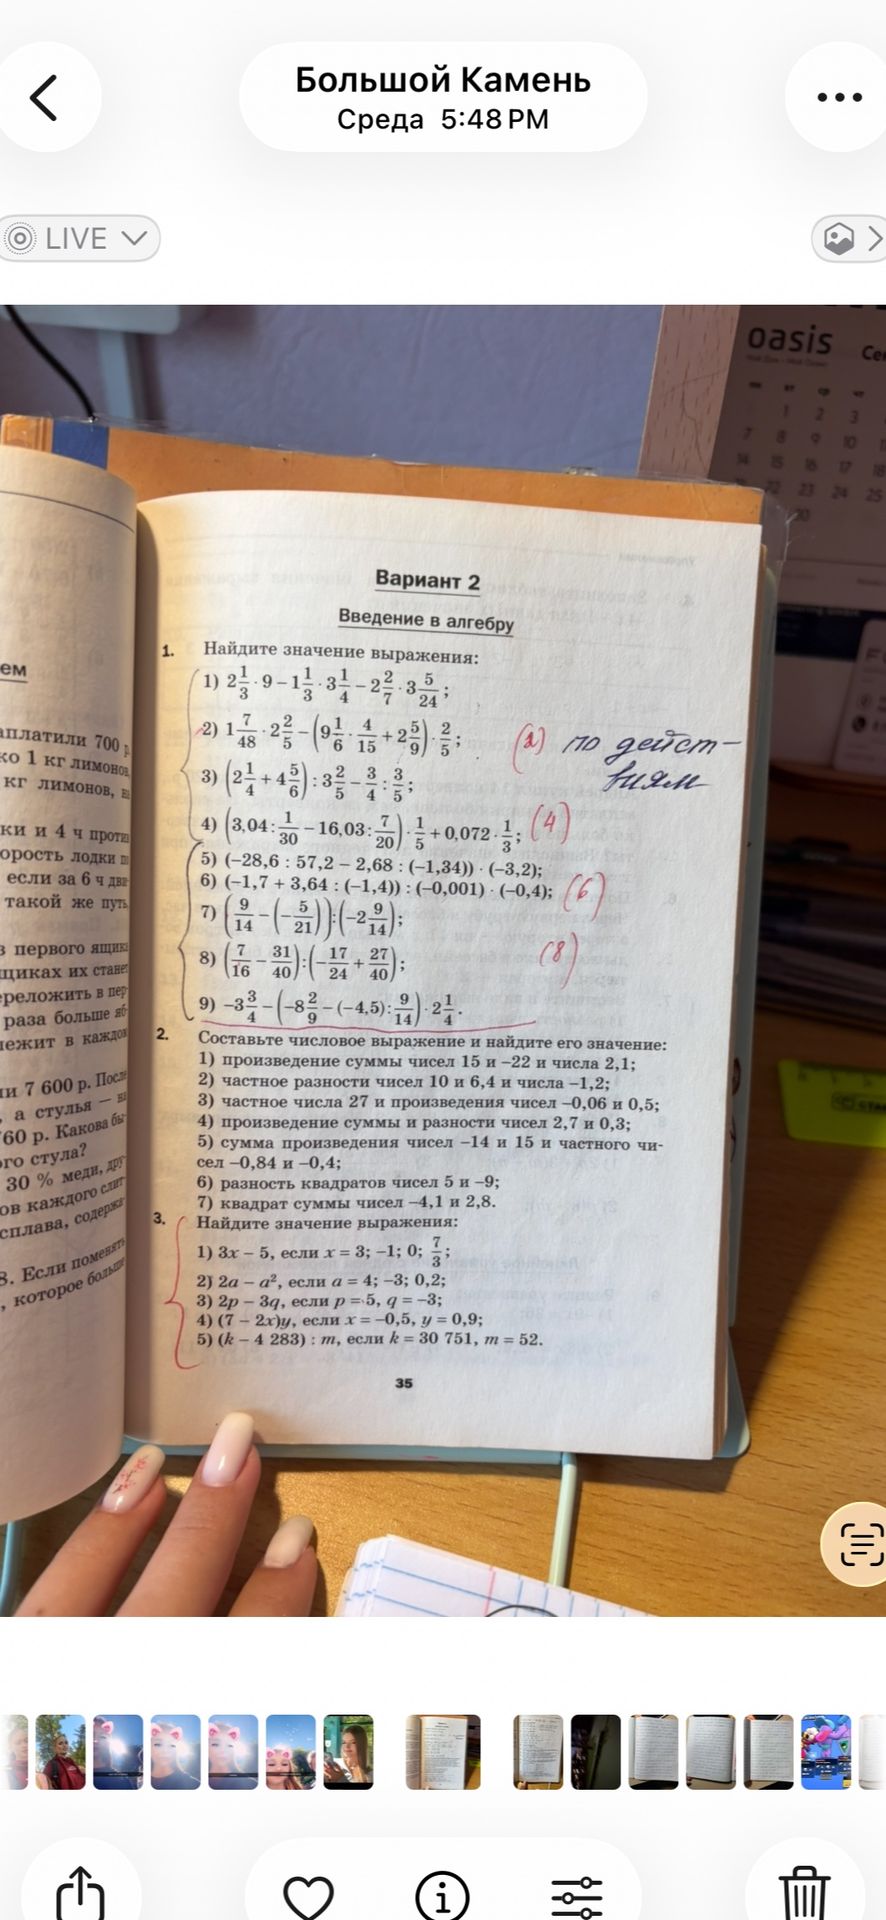 Большой Камень
Среда 5:48 PM
LIVE
oasis
Вариант 2
Введение в алгебру
1. Найдите значение выражения:
1) 2 1/3 · 9 − 1 1/3 · 3 1/4 − 2 2/7 · 3 5/24;
2) 1 7/48 · 2 2/5 − (9 1/6 · 4/15 + 2 5/9) · 2/5;
(2) по дейст-
виям
3) (2 1/4 + 4 5/6) : 3 2/5 − 3/4 : 3/5;
4) (3,04 : 1/30 − 16,03 : 7/20) · 1/5 + 0,072 · 1/3;
(4)
5) (−28,6 : 57,2 − 2,68 : (−1,34)) · (−3,2);
6) (−1,7 + 3,64 : (−1,4)) : (−0,001) · (−0,4);
(6)
7) (9/14 − (−5/21)) : (−2 9/14);
8) (7/16 − 31/40) : (−17/24 + 27/40);
(8)
9) −3 3/4 − (−8 2/9 − (−4,5) : 9/14) · 2 1/4.
2. Составьте числовое выражение и найдите его значение:
1) произведение суммы чисел 15 и −22 и числа 2,1;
2) частное разности чисел 10 и 6,4 и числа −1,2;
3) частное числа 27 и произведения чисел −0,06 и 0,5;
4) произведение суммы и разности чисел 2,7 и 0,3;
5) сумма произведения чисел −14 и 15 и частного чи-
сел −0,84 и −0,4;
6) разность квадратов чисел 5 и −9;
7) квадрат суммы чисел −4,1 и 2,8.
3. Найдите значение выражения:
1) 3x − 5, если x = 3; −1; 0; 7/3;
2) 2a − a², если a = 4; −3; 0,2;
3) 2p − 3q, если p = 5, q = −3;
4) (7 − 2x)y, если x = −0,5, y = 0,9;
5) (k − 4 283) : m, если k = 30 751, m = 52.
35
ем
аплатили 700 р
ко 1 кг лимонов
кг лимонов,
ки и 4 ч проти
орость лодки
если за 6 ч дви
такой же путь
з первого ящика
щиках их станет
реложить в пер
раза больше яб
лежит в каждом
ли 7 600 р. После
, а стулья — на
60 р. Какова бы
го стула?
30 % меди, дру
ов каждого спла
сплава, содержа
8. Если поменять
, которое больше